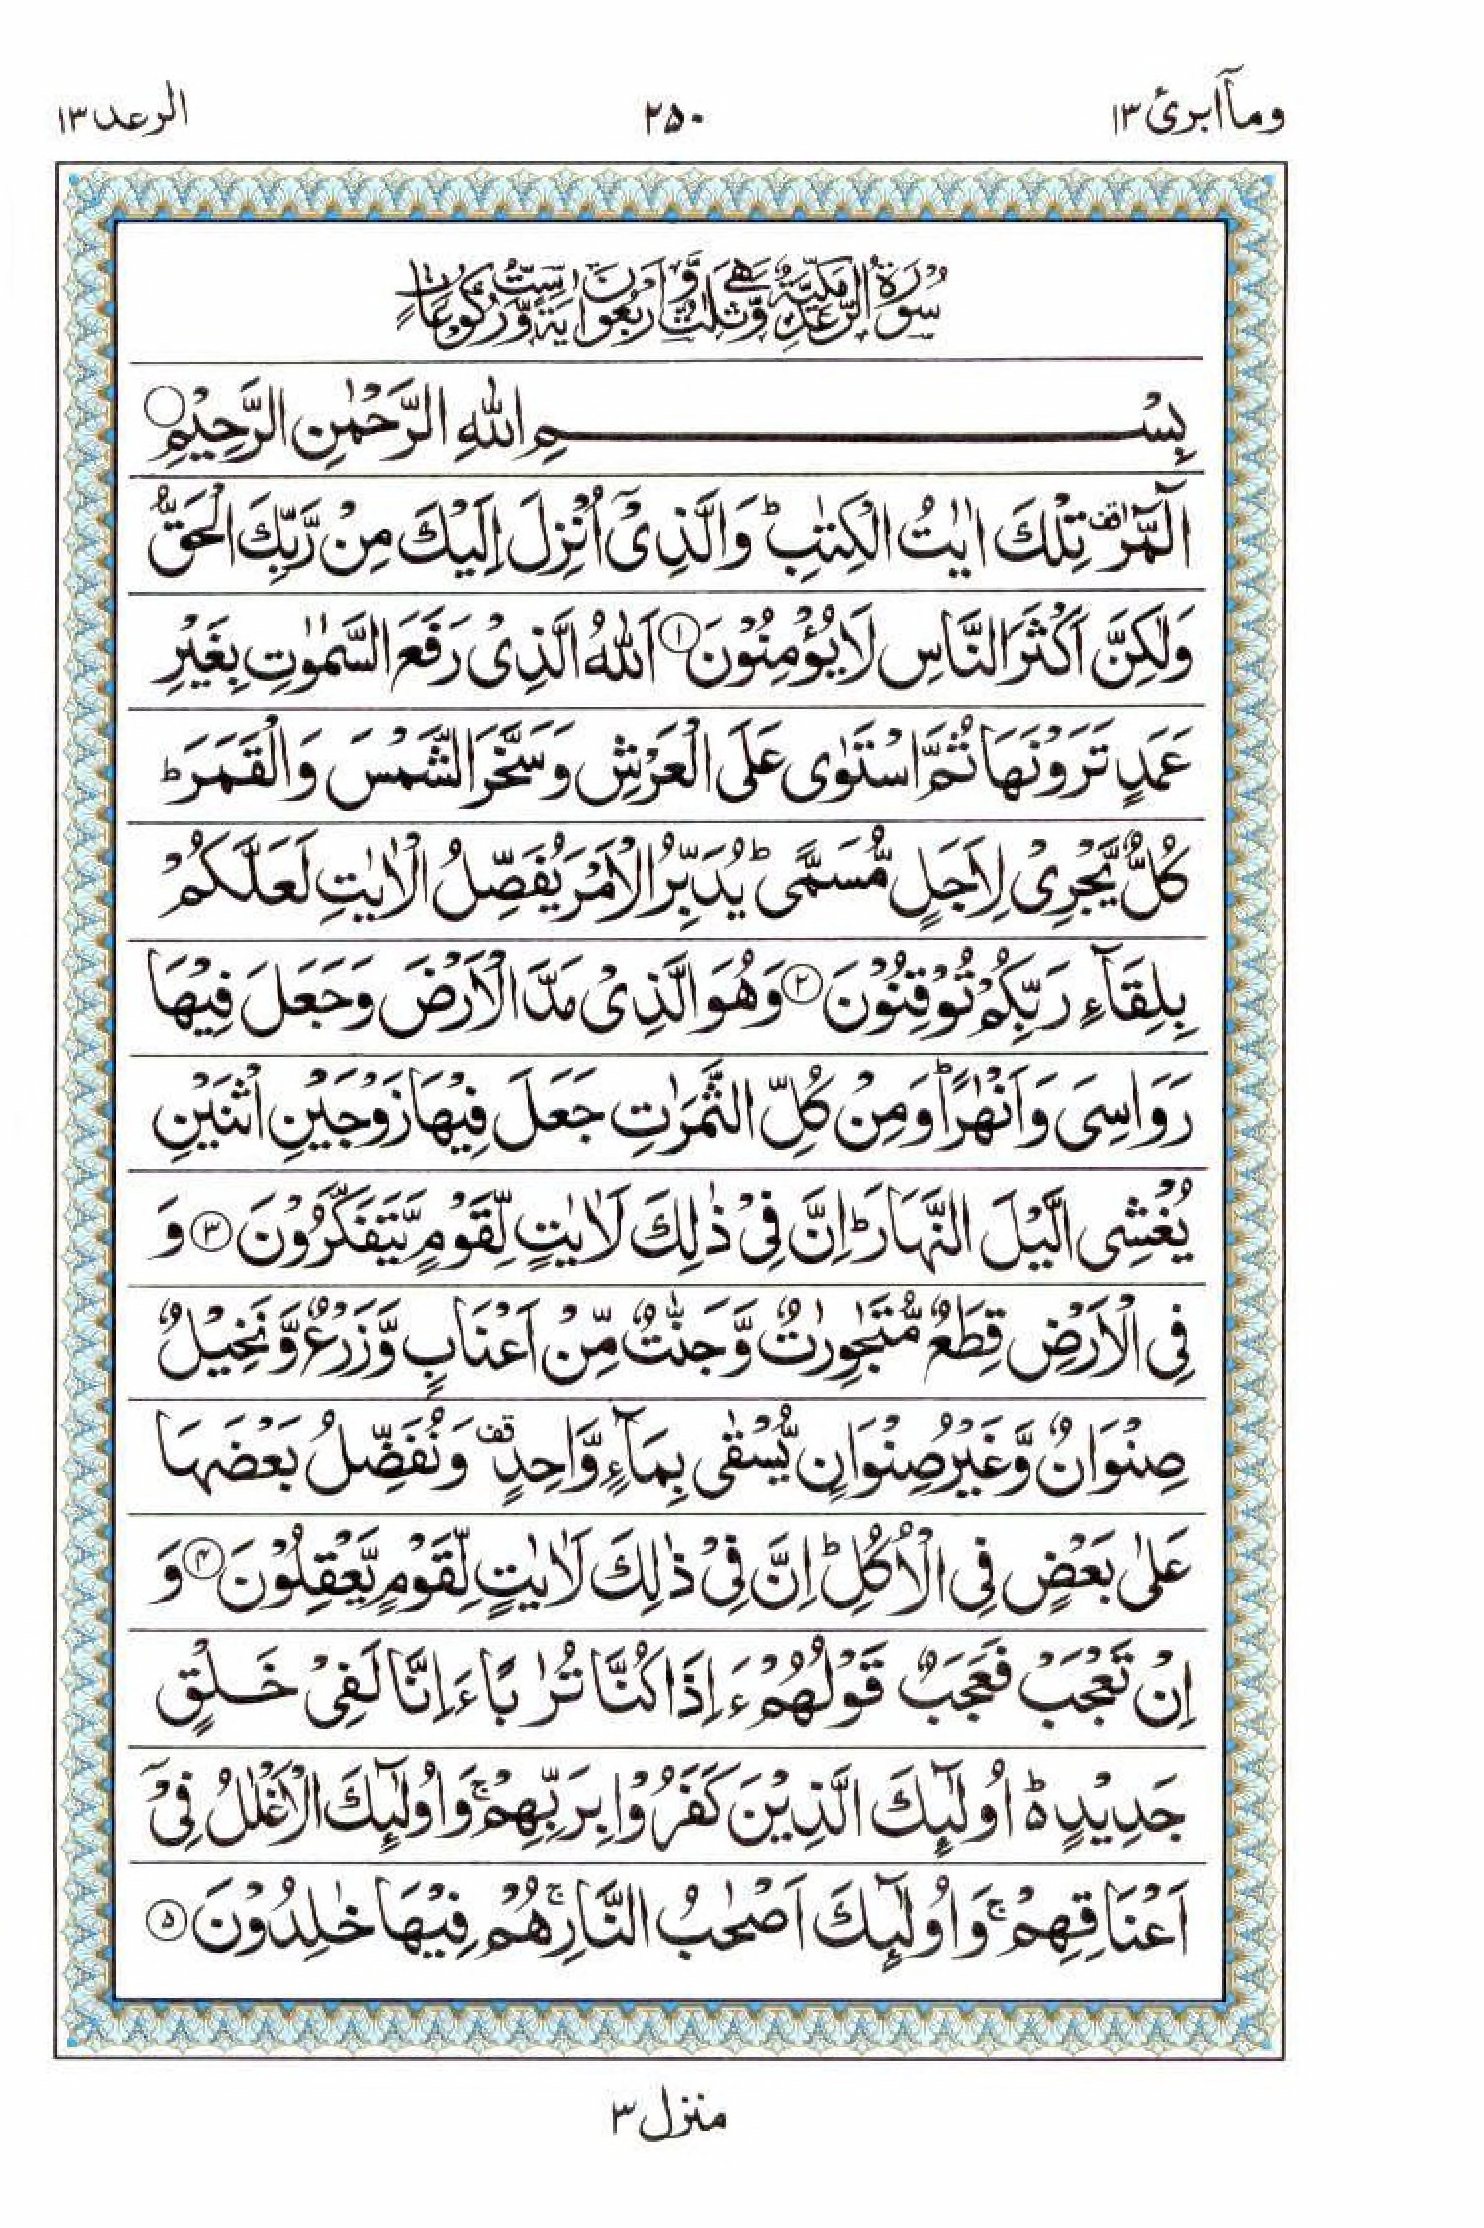 وماۤابرئ ١٣
٢٥٠
الرعد ١٣
سُوْرَةُ الرَّعْدِ مَكِّيَّةٌ وَّهِيَ ثَلٰثٌ وَّاَرْبَعُوْنَ اٰيَةً وَّسِتُّ رُكُوْعَاتٍ
بِسْمِ اللّٰهِ الرَّحْمٰنِ الرَّحِيْمِ
الٓمّٓرٰ قف تِلْكَ اٰيٰتُ الْكِتٰبِ ؕ وَالَّذِىْۤ اُنْزِلَ اِلَيْكَ مِنْ رَّبِّكَ الْحَقُّ
وَلٰكِنَّ اَكْثَرَ النَّاسِ لَا يُؤْمِنُوْنَ ١ اَللّٰهُ الَّذِىْ رَفَعَ السَّمٰوٰتِ بِغَيْرِ
عَمَدٍ تَرَوْنَهَا ثُمَّ اسْتَوٰى عَلَى الْعَرْشِ وَسَخَّرَ الشَّمْسَ وَالْقَمَرَ ؕ
كُلٌّ يَّجْرِىْ لِاَجَلٍ مُّسَمًّى ؕ يُدَبِّرُ الْاَمْرَ يُفَصِّلُ الْاٰيٰتِ لَعَلَّكُمْ
بِلِقَآءِ رَبِّكُمْ تُوْقِنُوْنَ ٢ وَهُوَ الَّذِىْ مَدَّ الْاَرْضَ وَجَعَلَ فِيْهَا
رَوَاسِىَ وَاَنْهٰرًا ؕ وَمِنْ كُلِّ الثَّمَرٰتِ جَعَلَ فِيْهَا زَوْجَيْنِ اثْنَيْنِ
يُغْشِى الَّيْلَ النَّهَارَ ؕ اِنَّ فِىْ ذٰلِكَ لَاٰيٰتٍ لِّقَوْمٍ يَّتَفَكَّرُوْنَ ٣ وَ
فِى الْاَرْضِ قِطَعٌ مُّتَجٰوِرٰتٌ وَّجَنّٰتٌ مِّنْ اَعْنَابٍ وَّزَرْعٌ وَّنَخِيْلٌ
صِنْوَانٌ وَّغَيْرُ صِنْوَانٍ يُّسْقٰى بِمَآءٍ وَّاحِدٍ قف وَنُفَضِّلُ بَعْضَهَا
عَلٰى بَعْضٍ فِى الْاُكُلِ ؕ اِنَّ فِىْ ذٰلِكَ لَاٰيٰتٍ لِّقَوْمٍ يَّعْقِلُوْنَ ٤ وَ
اِنْ تَعْجَبْ فَعَجَبٌ قَوْلُهُمْ ءَاِذَا كُنَّا تُرٰبًا ءَاِنَّا لَفِىْ خَلْقٍ
جَدِيْدٍ ؕ۬ اُولٰٓئِكَ الَّذِيْنَ كَفَرُوْا بِرَبِّهِمْ ۚ وَاُولٰٓئِكَ الْاَغْلٰلُ فِىْۤ
اَعْنَاقِهِمْ ۚ وَاُولٰٓئِكَ اَصْحٰبُ النَّارِ ۚ هُمْ فِيْهَا خٰلِدُوْنَ ٥
منزل ٣